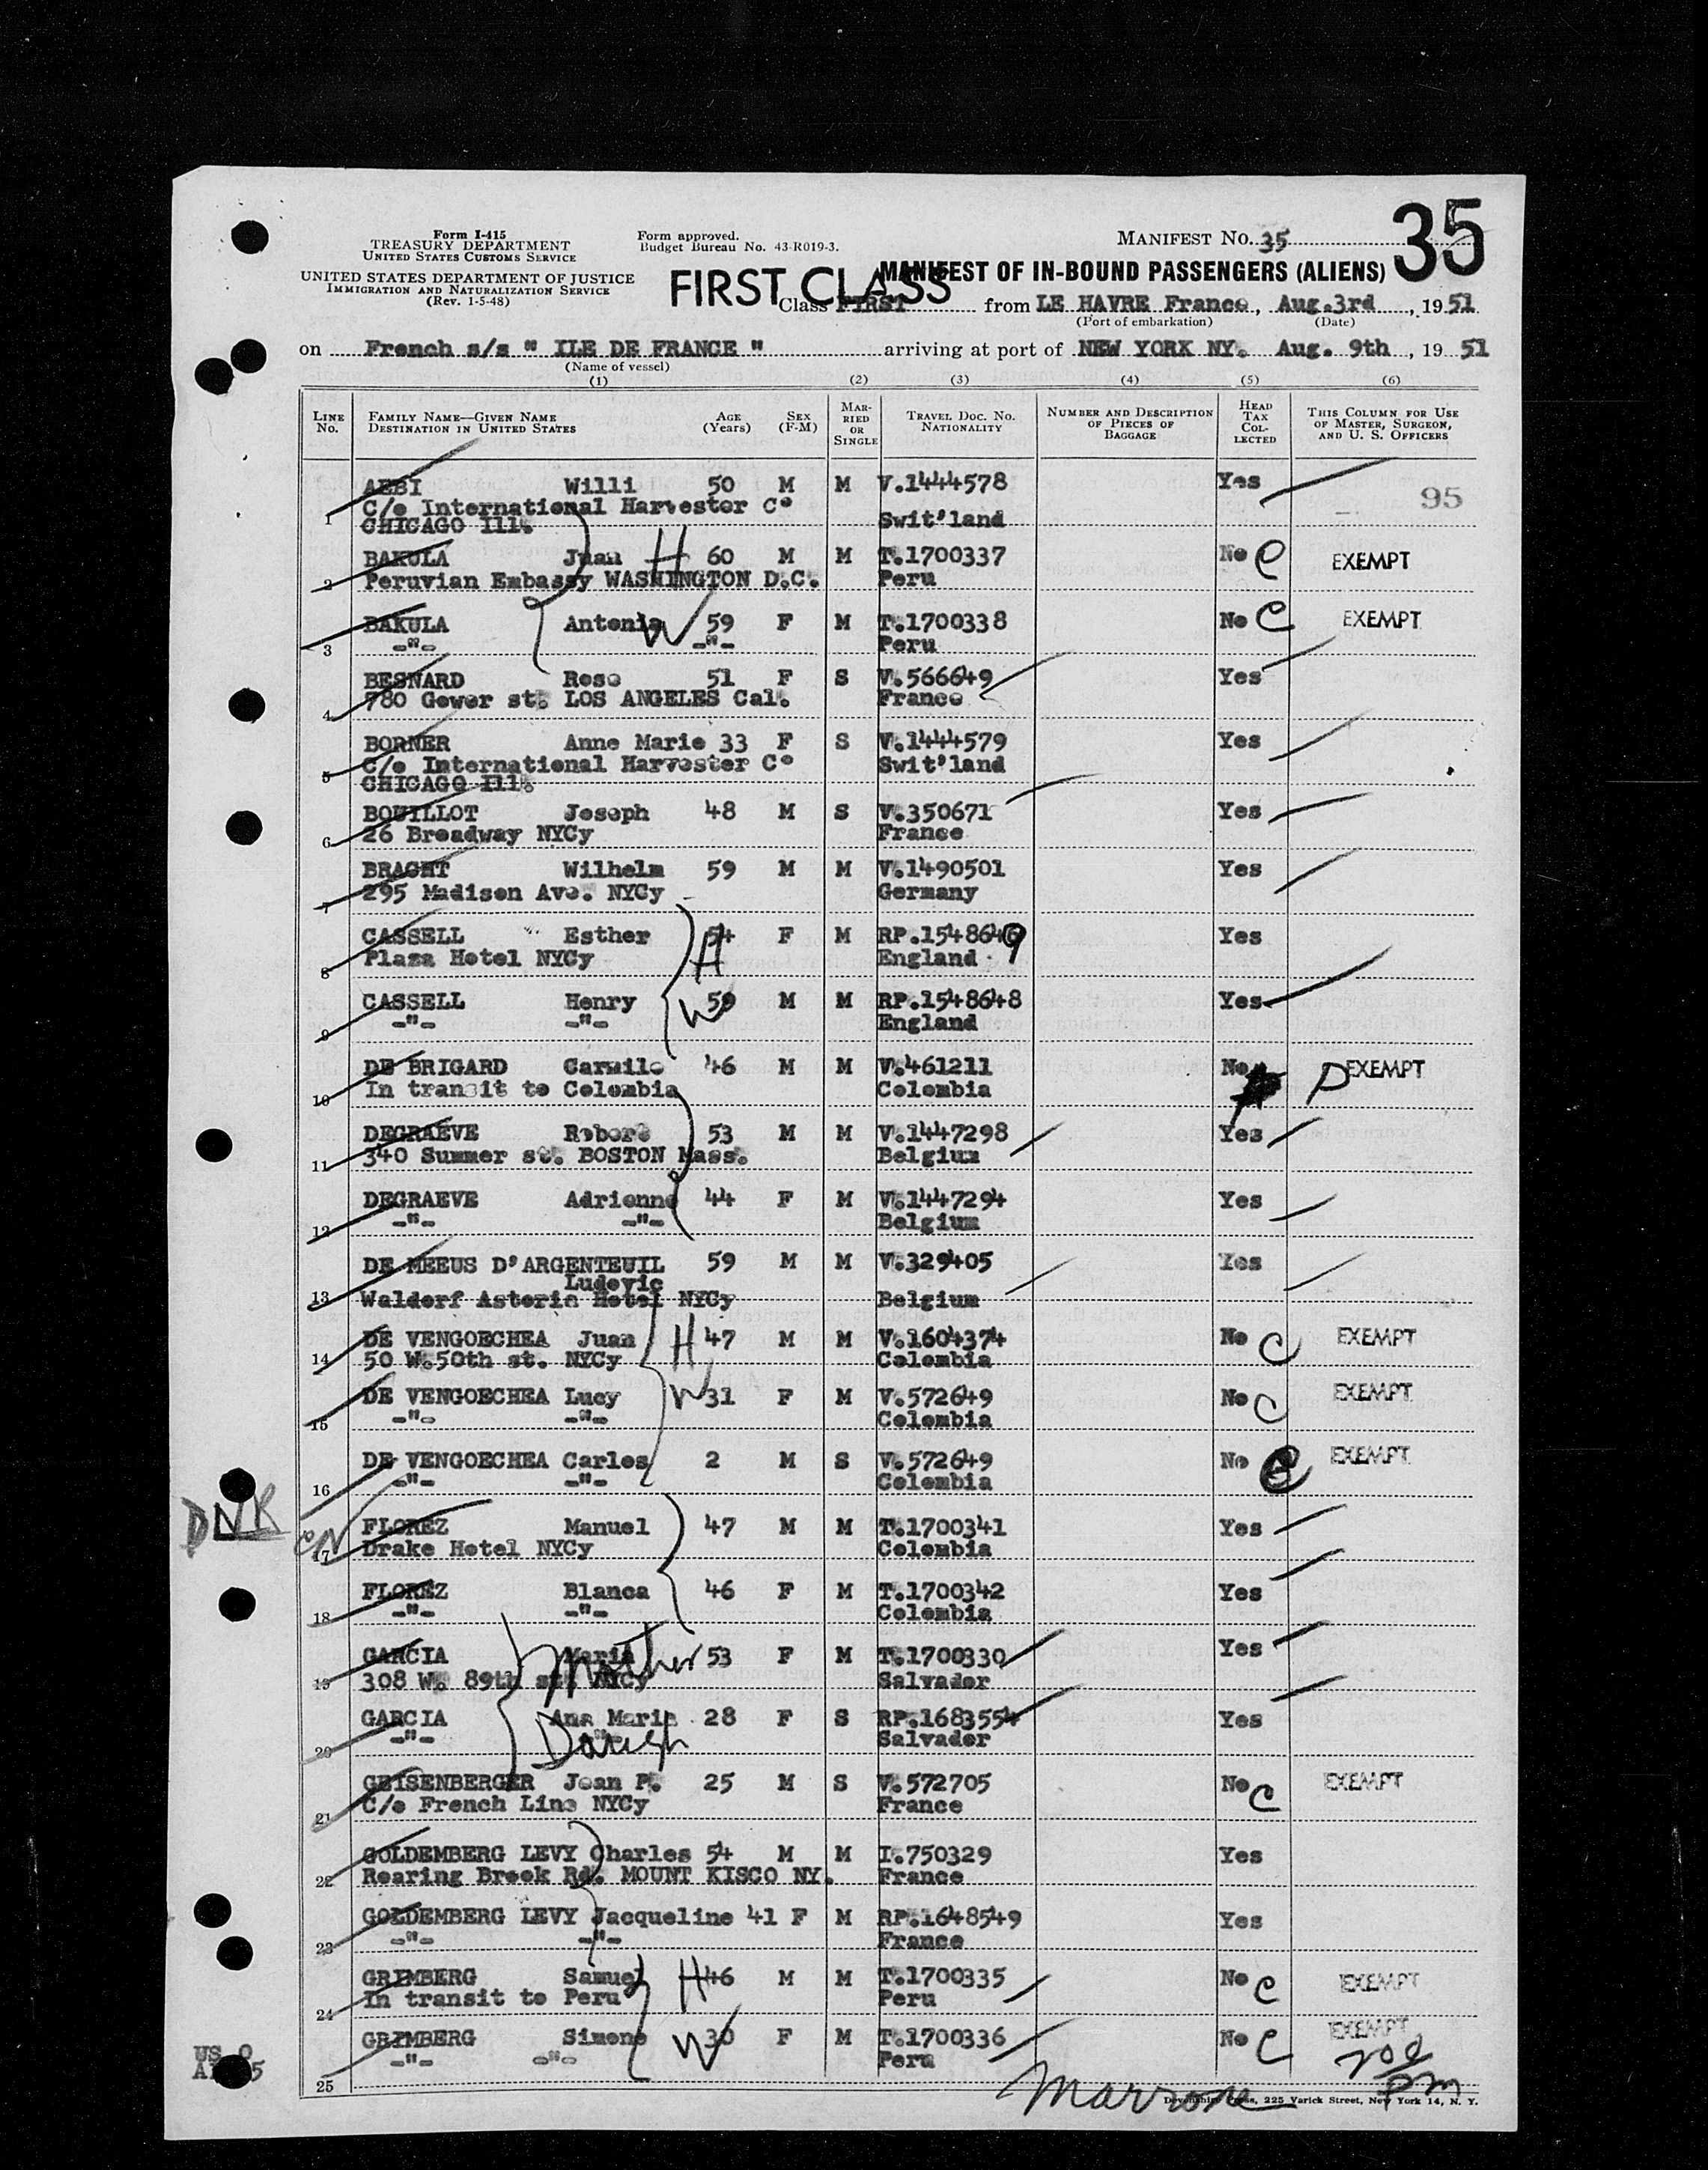 Form I-415
TREASURY DEPARTMENT
UNITED STATES CUSTOMS SERVICE
UNITED STATES DEPARTMENT OF JUSTICE
IMMIGRATION AND NATURALIZATION SERVICE
(Rev. 1-5-48)
Form approved.
Budget Bureau No. 43-R019-3.
MANIFEST No. 35
35
FIRST CLASS
MANIFEST OF IN-BOUND PASSENGERS (ALIENS)
Class FIRST from LE HAVRE France, Aug.3rd, 1951
(Port of embarkation) (Date)
on French s/s " ILE DE FRANCE " arriving at port of NEW YORK NY. Aug. 9th, 19 51
(Name of vessel)
(1) (2) (3) (4) (5) (6)
LINE No. FAMILY NAME—GIVEN NAME DESTINATION IN UNITED STATES AGE (Years) SEX (F-M) MARRIED OR SINGLE TRAVEL DOC. NO. NATIONALITY NUMBER AND DESCRIPTION OF PIECES OF BAGGAGE HEAD TAX COLLECTED THIS COLUMN FOR USE OF MASTER, SURGEON, AND U. S. OFFICERS
AEBI Willi 50 M M V.1444578 Yes
95
1 C/o International Harvester C° Swit'land
CHICAGO Ill.
BAKULA Juan H 60 M M T.1700337 No C EXEMPT
2 Peruvian Embassy WASHINGTON D.C. Peru
BAKULA Antonia W 59 F M T.1700338 No C EXEMPT
3 -"- -"- Peru
BESNARD Rose 51 F S V.566649 Yes
4 780 Gower st. LOS ANGELES Cal. France
BORNER Anne Marie 33 F S V.1444579 Yes
5 C/o International Harvester C° Swit'land
CHICAGO Ill.
BOUILLOT Joseph 48 M S V.350671 Yes
6 26 Broadway NYCy France
BRAGHT Wilhelm 59 M M V.1490501 Yes
7 295 Madison Ave. NYCy Germany
CASSELL Esther 54 H F M RP.1548649 Yes
8 Plaza Hotel NYCy England 9
CASSELL Henry W 59 M M RP.1548648 Yes
9 -"- -"- England
DE BRIGARD Carmilo 46 M M V.461211 No P EXEMPT
10 In transit to Colombia Colombia
DEGRAEVE Robert 53 M M V.1447298 Yes
11 340 Summer st. BOSTON Mass. Belgium
DEGRAEVE Adrienne 44 F M V.1447294 Yes
12 -"- -"- Belgium
DE MEEUS D'ARGENTEUIL 59 M M V.329405 Yes
Ludovic
13 Waldorf Astoria Hotel NYCy Belgium
DE VENGOECHEA Juan H 47 M M V.1604374 No C EXEMPT
14 50 W.50th st. NYCy Colombia
DE VENGOECHEA Lucy W 31 F M V.572649 No C EXEMPT
15 -"- -"- Colombia
DE VENGOECHEA Carlos 2 M S V.572649 No C EXEMPT
16 -"- -"- Colombia
DNK
FLOREZ Manuel 47 M M T.1700341 Yes
17 Drake Hotel NYCy Colombia
FLOREZ Blanca 46 F M T.1700342 Yes
18 -"- -"- Colombia
GARCIA Maria Mother 53 F M T.1700330 Yes
19 308 W. 89th st. NYCy Salvador
GARCIA Ana Maria 28 F S RP.1683554 Yes
20 -"- Daugh Salvador
GEISENBERGER Jean P. 25 M S V.572705 No C EXEMPT
21 C/o French Line NYCy France
GOLDEMBERG LEVY Charles 54 M M I.750329 Yes
22 Roaring Brook Rd. MOUNT KISCO NY. France
GOLDEMBERG LEVY Jacqueline 41 F M RP.1648549 Yes
23 -"- -"- France
GRIMBERG Samuel H 46 M M T.1700335 No C EXEMPT
24 In transit to Peru Peru
GRIMBERG Simone W 30 F M T.1700336 No C EXEMPT
-"- -"- Peru
25
Marrone
pm
Devonshire Press, 225 Varick Street, New York 14, N. Y.